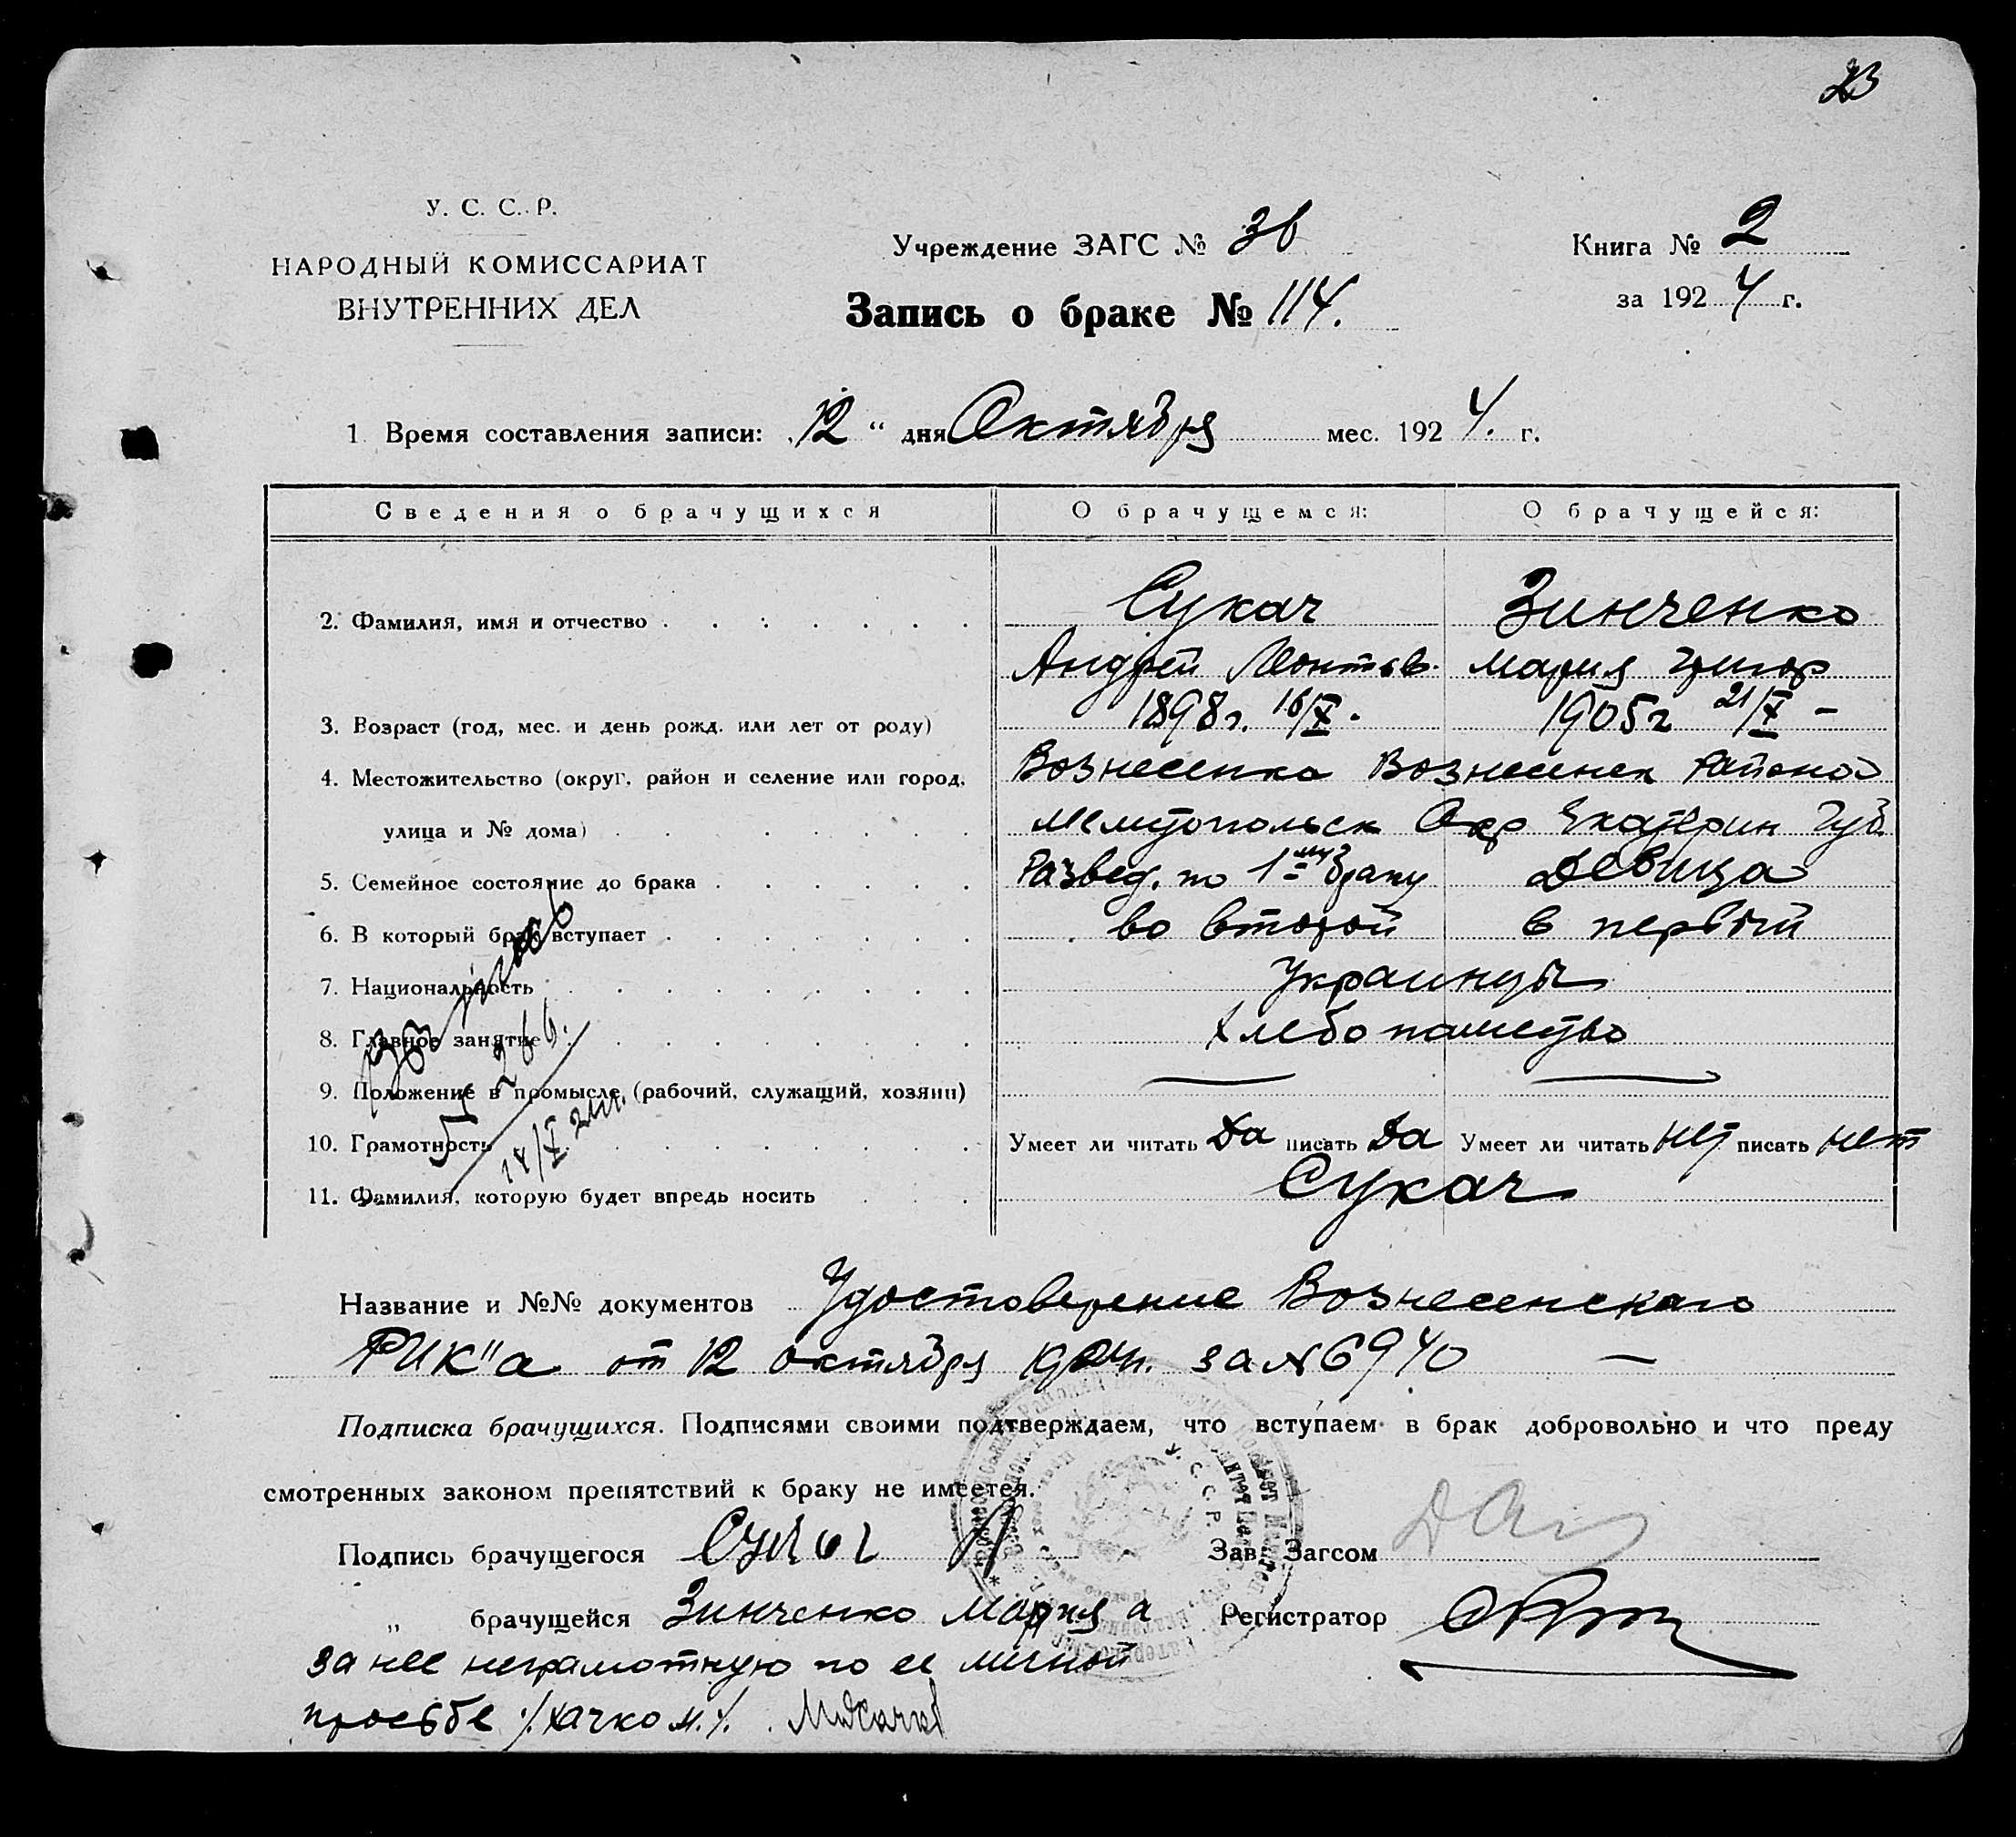 23
У. С. С. Р.
НАРОДНЫЙ КОМИССАРИАТ
ВНУТРЕННИХ ДЕЛ
Учреждение ЗАГС № 36
Запись о браке № 114.
Книга № 2
за 1924 г.
1. Время составления записи: 12 " дня Октября мес. 1924. г.
Сведения о брачущихся О брачущемся: О брачущейся:
2. Фамилия, имя и отчество Сукач Зинченко
Андрей Леонтьев. Мария Григор
3. Возраст (год, мес. и день рожд. или лет от роду) 1898 г. 16/X. 1905 г 21/X –
4. Местожительство (округ, район и селение или город, Вознесенка Вознесенск Района
улица и № дома) Мелитопольск Окр Екатерин Губ.
5. Семейное состояние до брака Развед. по 1му браку Девица
6. В который брак вступает во второй в первый
7. Национальность Украинцы
8. Главное занятие Хлебопашество
9. Положение в промысле (рабочий, служащий, хозяин)
10. Грамотность Умеет ли читать Да писать Да Умеет ли читать нет писать нет
11. Фамилия, которую будет впредь носить Сукач
Название и №№ документов Удостоверение Вознесенского
РИК"а от 12 октября 1924 г. за № 6940 —
Подписка брачущихся. Подписями своими подтверждаем, что вступаем в брак добровольно и что преду
смотренных законом препятствий к браку не имеется.
Подпись брачущегося Сукач А Зав. Загсом
„ брачущейся Зинченко Мария а Регистратор
за нее неграмотную по ее личной
просьбе